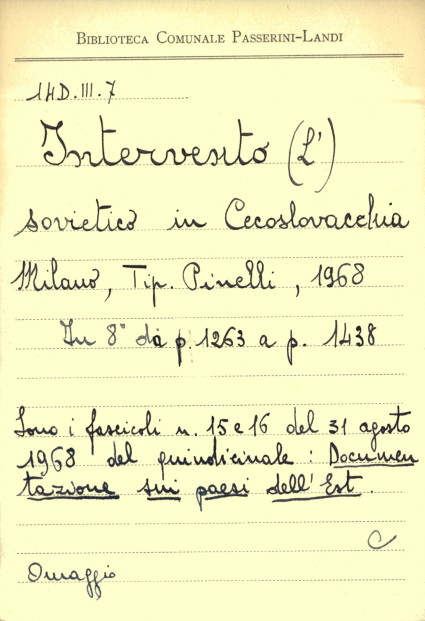 BIBLIOTECA COMUNALE PASSERINI-LANDI
14D.III.7
Intervento (L')
sovietico in Cecoslovacchia
Milano, Tip. Pinelli, 1968
In 8° da p. 1263 a p. 1438
Sono i fascicoli n. 15 e 16 del 31 agosto
1968 del quindicinale: Documen
tazione sui paesi dell'Est.
C
Omaggio